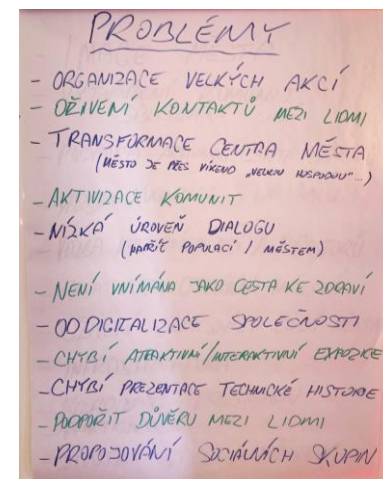 PROBLÉMY
- ORGANIZACE VELKÝCH AKCÍ
- OŽIVENÍ KONTAKTŮ MEZI LIDMI
- TRANSFORMACE CENTRA MĚSTA
(MĚSTO JE PŘES VÍKEND „VELKOU HOSPODOU"...)
- AKTIVIZACE KOMUNIT
- NÍZKÁ ÚROVEŇ DIALOGU
(NAPŘÍČ POPULACÍ / MĚSTEM)
- NENÍ VNÍMÁNA JAKO CESTA KE ZDRAVÍ
- ODDIGITALIZACE SPOLEČNOSTI
- CHYBÍ ATRAKTIVNÍ/INTERAKTIVNÍ EXPOZICE
- CHYBÍ PREZENTACE TECHNICKÉ HISTORIE
- PODPOŘIT DŮVĚRU MEZI LIDMI
- PROPOJOVÁNÍ SOCIÁLNÍCH SKUPIN